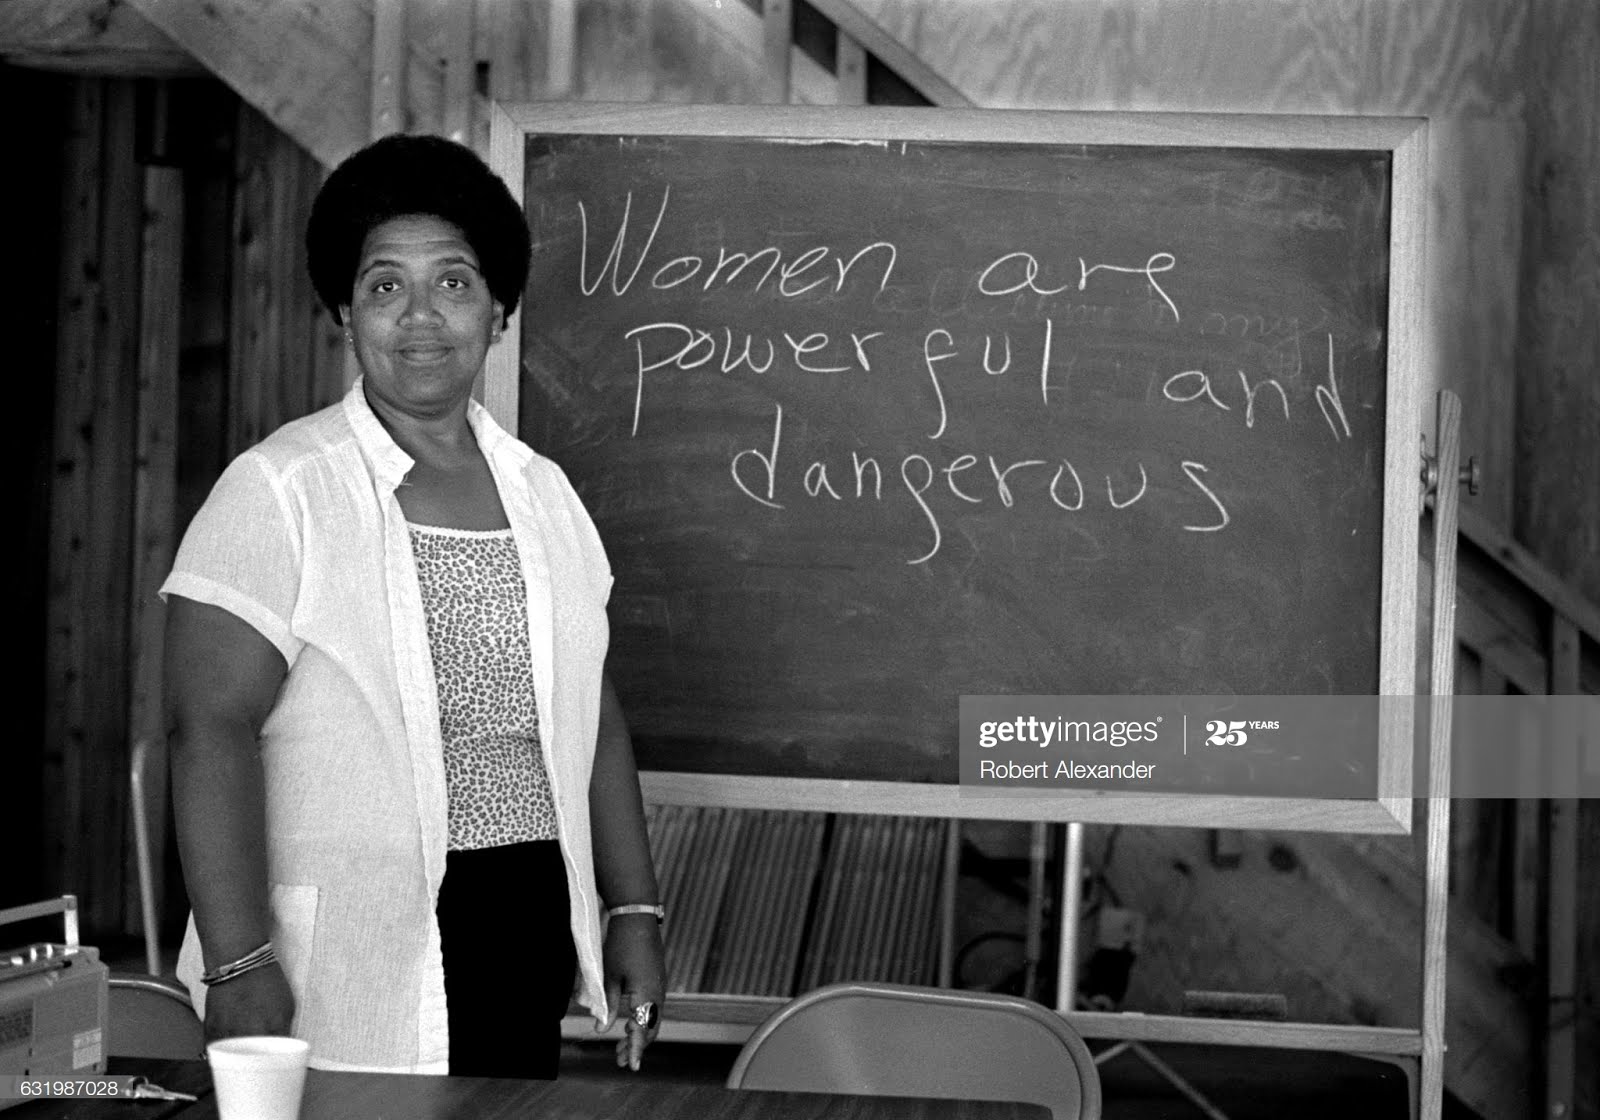 Women are
powerful and
dangerous
gettyimages® 25 YEARS
Robert Alexander
631987028